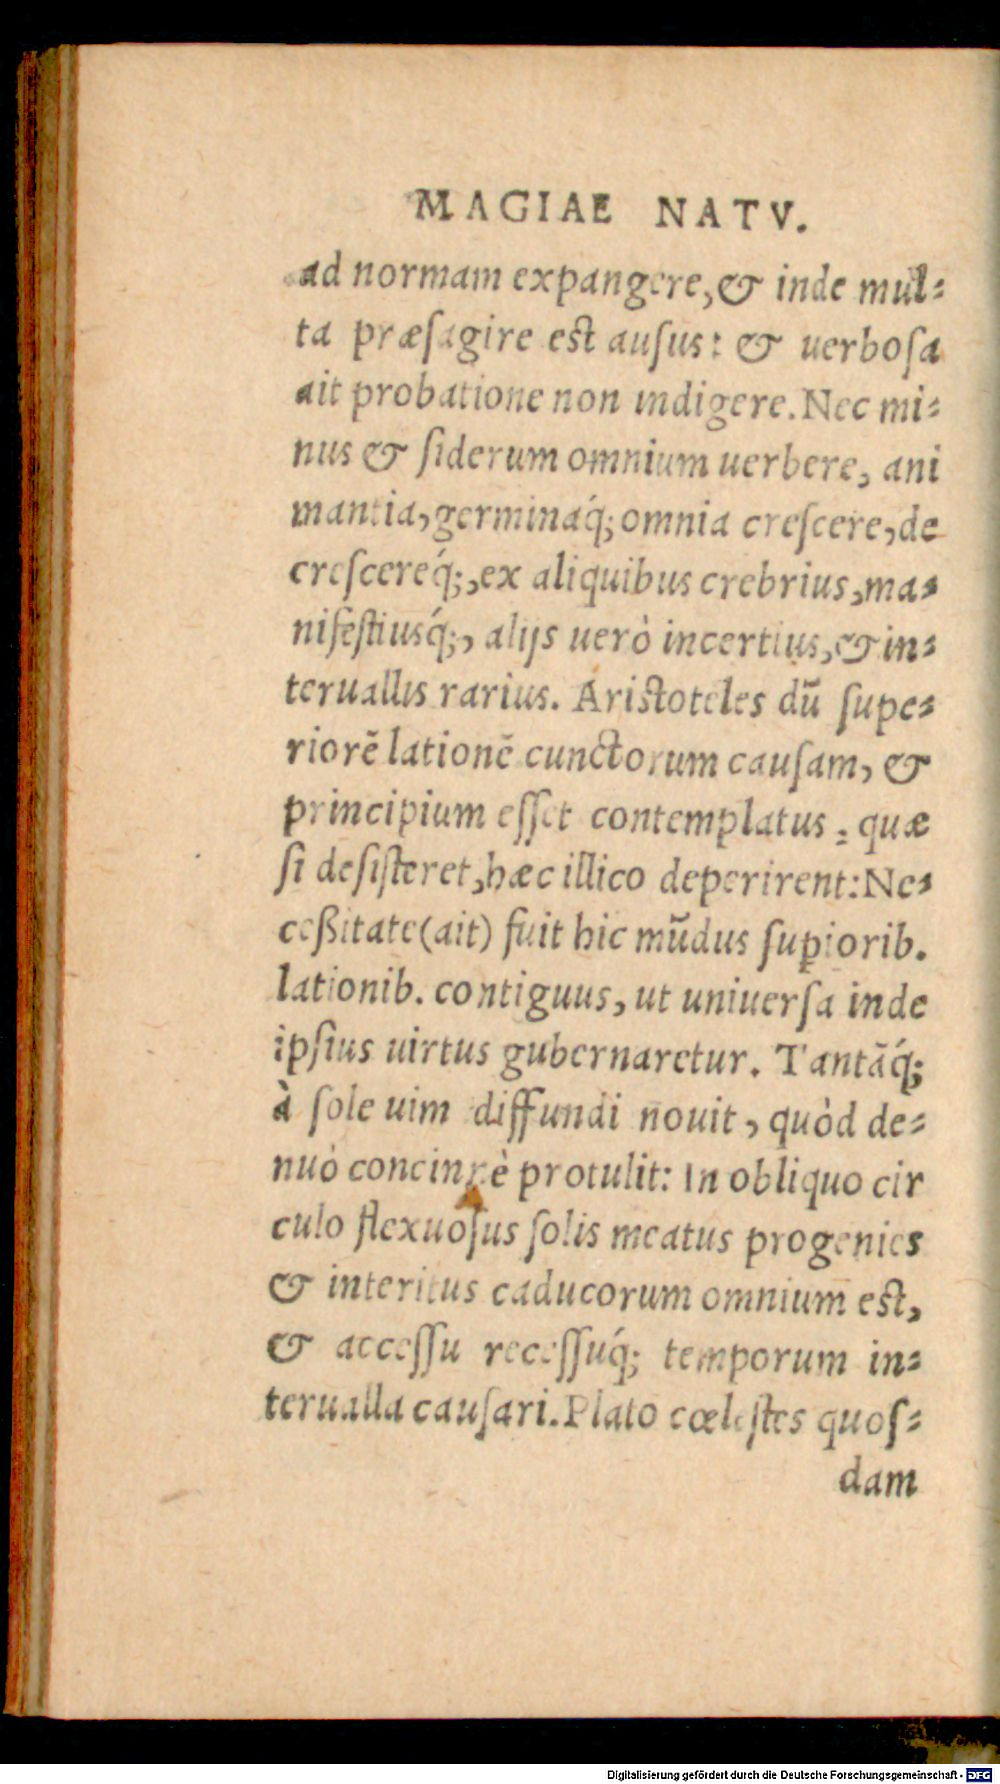 MAGIAE NATV.
ad normam expangere, & inde mul-
ta præsagire est ausus: & uerbosa
ait probatione non indigere. Nec mi-
nus & siderum omnium uerbere, ani
mantia, germinaq́; omnia crescere, de
crescereq́;, ex aliquibus crebrius, ma-
nifestiusq́;, alijs uerò incertius, & in-
teruallis rarius. Aristoteles dũ supe-
riorẽ lationẽ cunctorum causam, &
principium esset contemplatus: quæ
si desisteret, hæc illico deperirent: Ne-
ceßitate (ait) fuit hic mũdus sup̱iorib.
lationib. contiguus, ut uniuersa inde
ipsius uirtus gubernaretur. Tantãq́;
à sole uim diffundi nouit, quòd de-
nuò concinnè protulit: In obliquo cir
culo flexuosus solis meatus progenies
& interitus caducorum omnium est,
& accessu recessuq́; temporum in-
terualla causari. Plato cœlestes quos-
dam
Digitalisierung gefördert durch die Deutsche Forschungsgemeinschaft - DFG